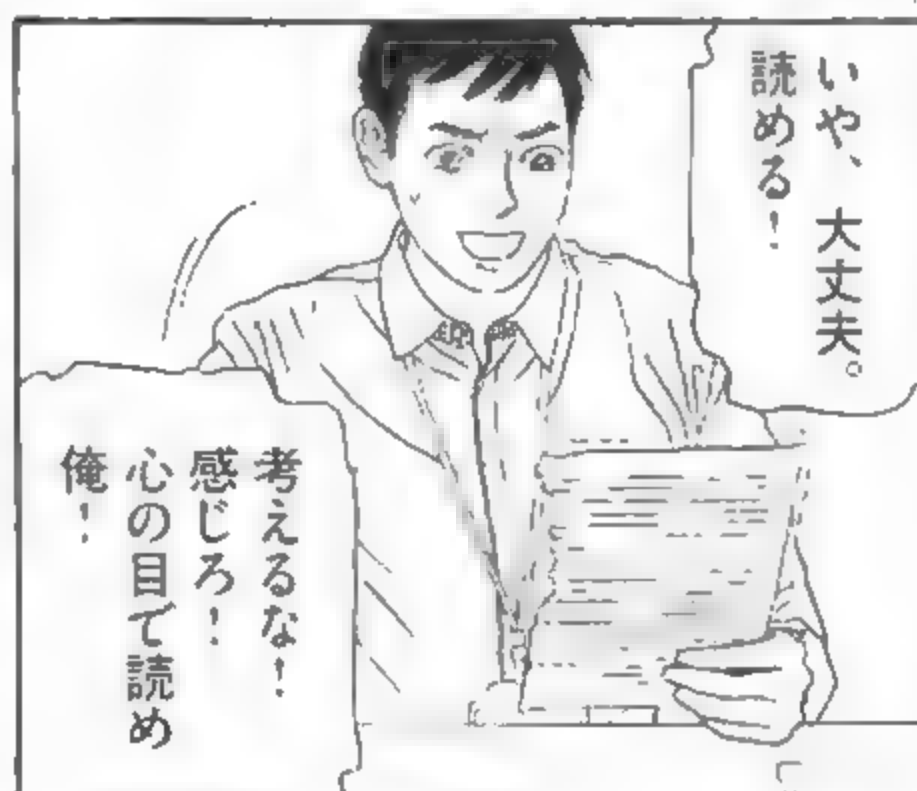 いや、大丈夫。
読める！
考えるな！
感じろ！
心の目で読め
俺！